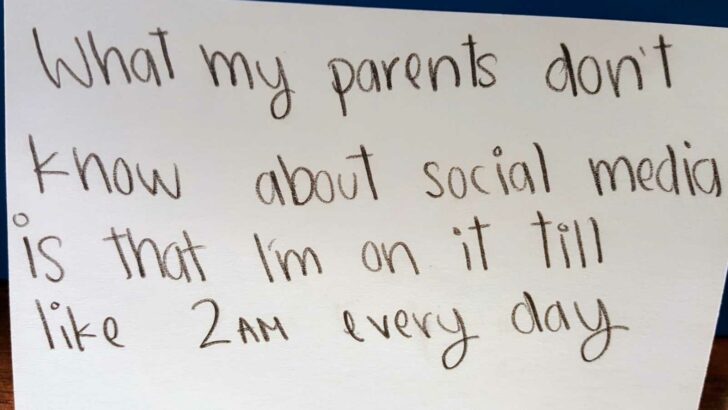 What my parents don't
know about social media
is that I'm on it till
like 2AM every day